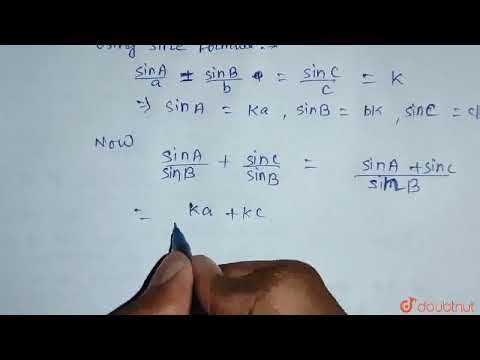 Using sine formula :-
sinA/a = sinB/b = sinC/c = K
⇒ sinA = Ka , sinB = bK , sinC = c
Now
sinA/sinB + sinC/sinB = sinA + sinC/sinB
= Ka + KC
doubtnut